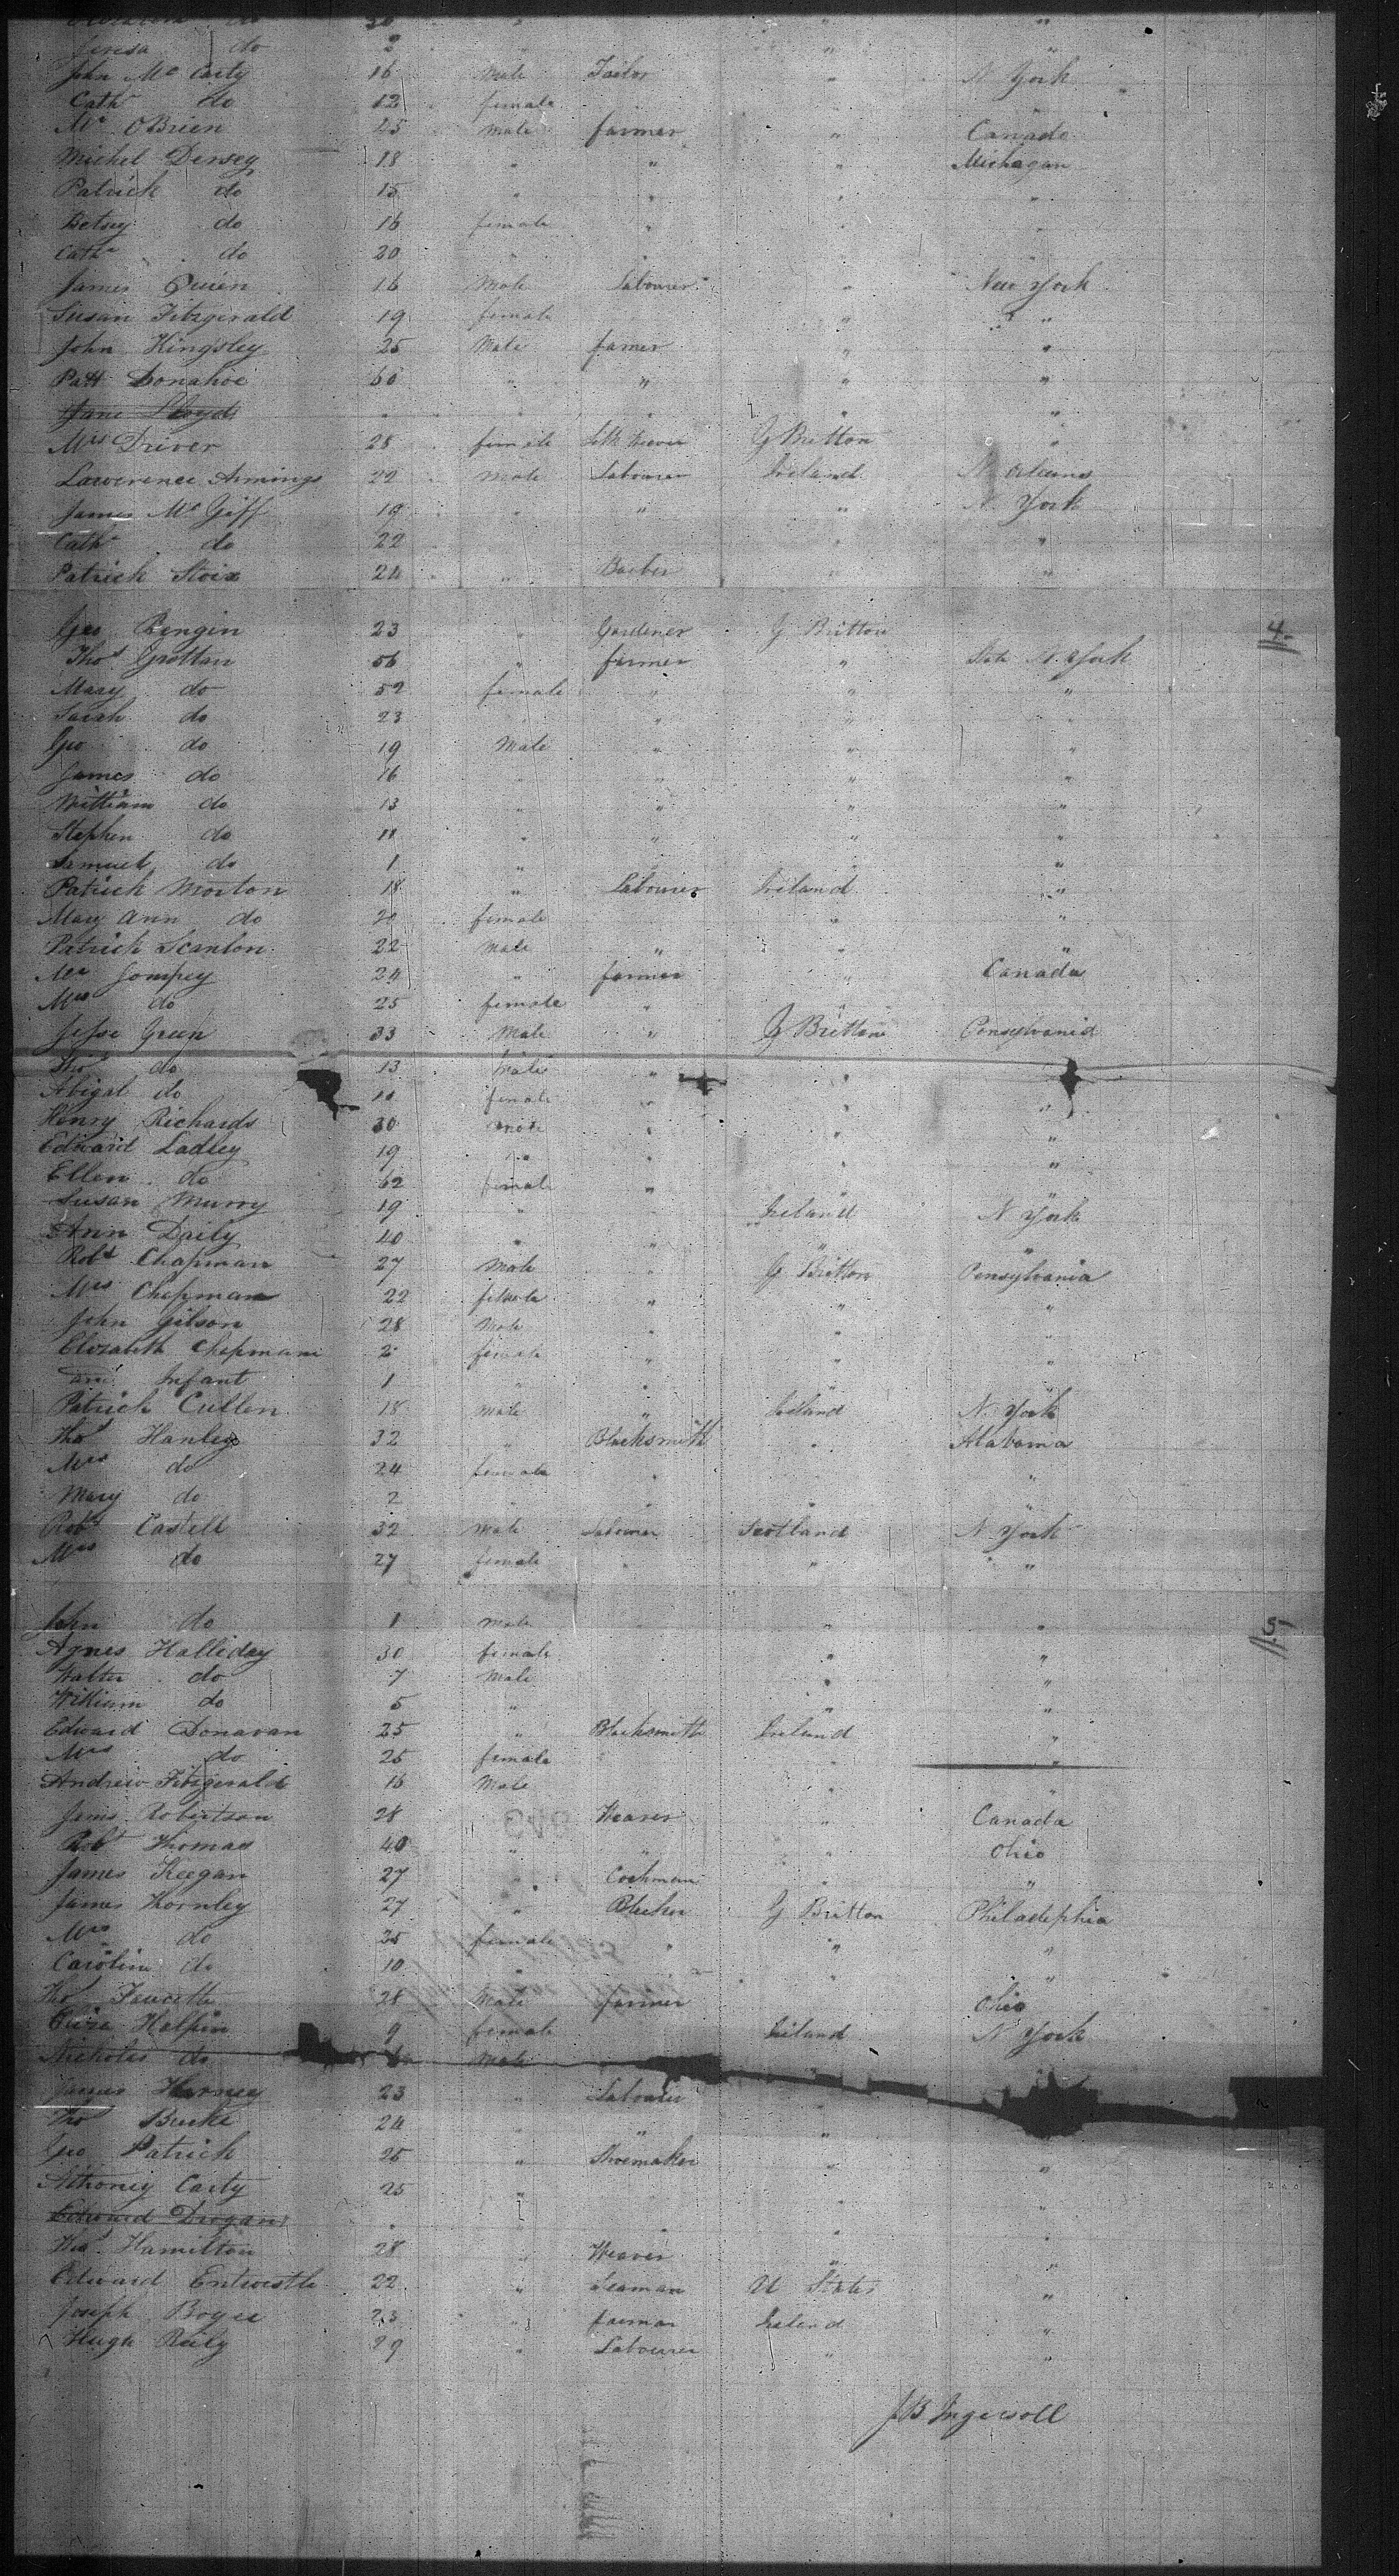 do 30 "
Teresa do 2 " "
John Mc Carty 16 Male Tailor " N York
Cathe do 12 female " "
Mr OBrien 45 Male farmer " Canada
Michel Dersey 18 " " " Michagan
Patrick do 15 " " " "
Betsey do 16 female " " "
Cathe do 20 " " "
James Quien 16 Male Labourer " New York
Susan Fitzgerald 19 female " "
John Kingsley 25 Male farmer " "
Patt Donahoe 60 " " " "
Jane Lloyd " " " "
Mrs Driver 28 female Silk weaver G Britton "
Lawerence Armings 22 Male Labourer Ireland N Orleans
James Mc Giff 19 " " " N. York
Cathe do 22 "
Patrick Stoix 24 " Barber " "
Geo Bengin 23 " Gardener G Britton 4
Thos Grattan 56 " farmer " State N. York
Mary do 52 female " " "
Sarah do 23 " " " "
Geo do 19 Male " " "
James do 16 " " " "
William do 13 " " " "
Stephen do 11 " " " "
Samuel do 1 " " " "
Patrick Morton 18 " Labourer Ireland "
Mary Ann do 20 female " "
Patrick Scanlon 22 Male " " "
Mr Jompey 24 " farmer " Canada
Mrs do 25 female "
Jesse Green 33 Male " G Britton Pensylvania
Thos do 13 Male " "
Abigal do 10 female " " "
Henry Richards 30 male " " "
Edward Ladley 19 " " " "
Ellen do 62 female " " "
Susan Murry 19 " Ireland N York
Ann Daily 40 " " " "
Robt Chapman 27 Male " G Britton Pensylvania
Mrs Chapman 22 female " " "
John Gilson 28 Male " " "
Elizabeth Chapman 2 female " " "
Infant 1 " " " "
Patrick Cullen 18 male " Ireland N. York
Thos Hanley 32 " Blacksmith " Alabama
Mrs do 24 female " "
Mary do 2 " " " "
Robt Castell 32 Male Labourer Scotland N York
Mrs do 27 female " " "
John do 1 Male " " 5
Agnes Halliday 30 female " "
Walter do 7 Male " "
William do 5 " " "
Edward Donavan 25 " Blacksmith Ireland "
Mrs do 25 female " "
Andrew Fitzgerald 16 Male " "
Jams Robertson 28 Weaver " Canada
Robt Thomas 40 " " " Ohio
James Keegan 27 " Cochman " "
James Thornley 27 " Blecher G Britton Philadephia
Mrs do 25 female " " "
Caroline do 10 " " "
Thos Faucette 28 Male farmer Ohio
Halpin 9 female Ireland N York
Nicholas do Male
James Harney 23 " Labourer "
Thos Burke 24 " " "
Geo Patrick 25 " Shoemaker " "
Athoney Carty 25 " " "
Edward Drogan " "
Thos Hamilton 28 " Weaver " "
Edward Entwestle 22 " Seaman U States "
Joseph Boyce 23 " farmer Ireland "
Hugh Reily 29 " Labourer " "
J B Ingersoll